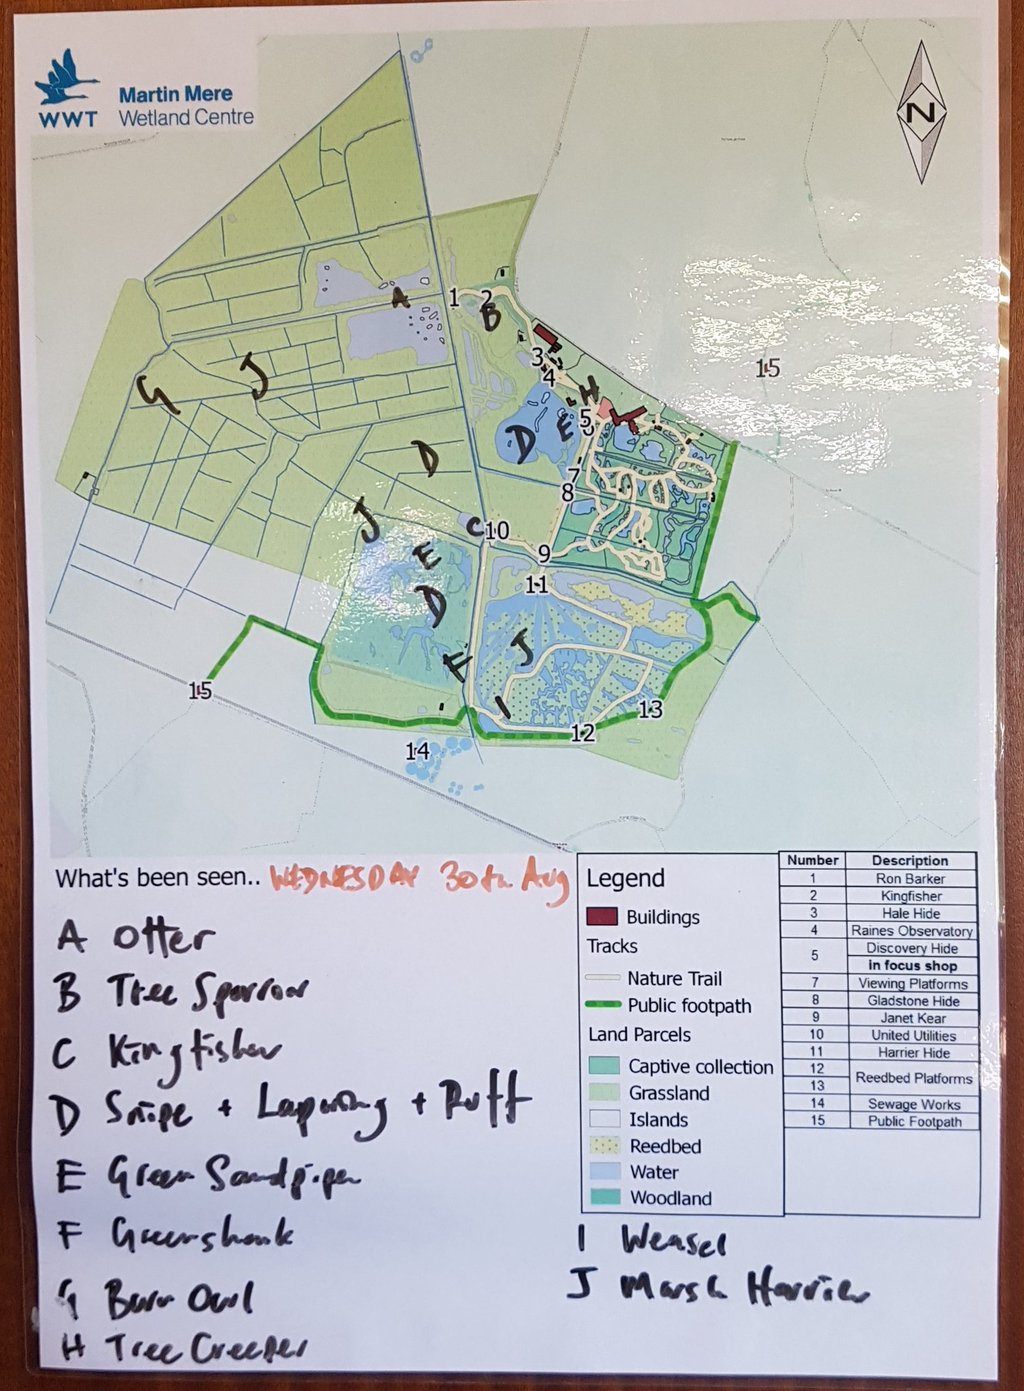 WWT
Martin Mere
Wetland Centre
N
A
1
2
B
3
15
4
G
J
H
5
D
E
D
7
8
J
C
10
E
9
11
D
J
F
15
I
13
12
14
What's been seen.. WEDNESDAY 30th Aug
A Otter
B Tree Sparrow
C Kingfisher
D Snipe + Lapwing + Ruff
E Green Sandpiper
F Greenshank
G Barn Owl
H Tree Creeper
I Weasel
J Marsh Harrier
Legend
Buildings
Tracks
Nature Trail
Public footpath
Land Parcels
Captive collection
Grassland
Islands
Reedbed
Water
Woodland
Number Description
1 Ron Barker
2 Kingfisher
3 Hale Hide
4 Raines Observatory
5 Discovery Hide
in focus shop
7 Viewing Platforms
8 Gladstone Hide
9 Janet Kear
10 United Utilities
11 Harrier Hide
12 Reedbed Platforms
13
14 Sewage Works
15 Public Footpath